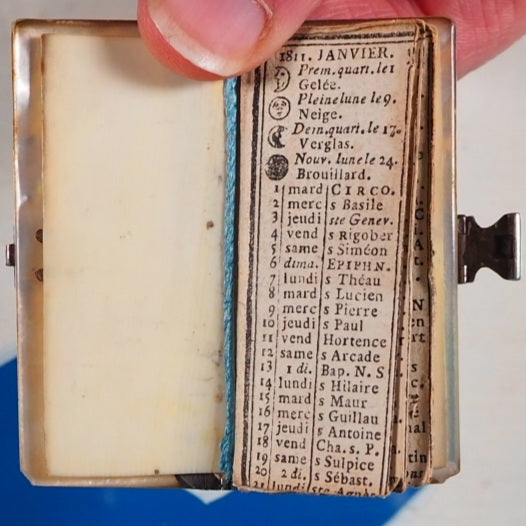 1811. JANVIER.
Prem. quart. le 1
Gelée.
Pleine lune le 9.
Neige.
Dern. quart. le 17.
Verglas.
Nouv. lune le 24.
Brouillard.
1 mard CIRCO.
2 merc s Basile
3 jeudi ste Genev.
4 vend s Rigober
5 same s Siméon
6 dima. EPIPHN.
7 lundi s Théau
8 mard s Lucien
9 merc s Pierre
10 jeudi s Paul
11 vend Hortence
12 same s Arcade
13 1 di. Bap. N. S
14 lundi s Hilaire
15 mard s Maur
16 merc s Guillau
17 jeudi s Antoine
18 vend Cha. s. P.
19 same s Sulpice
20 2 di. s Sébast.
21 lundi ste Agnès